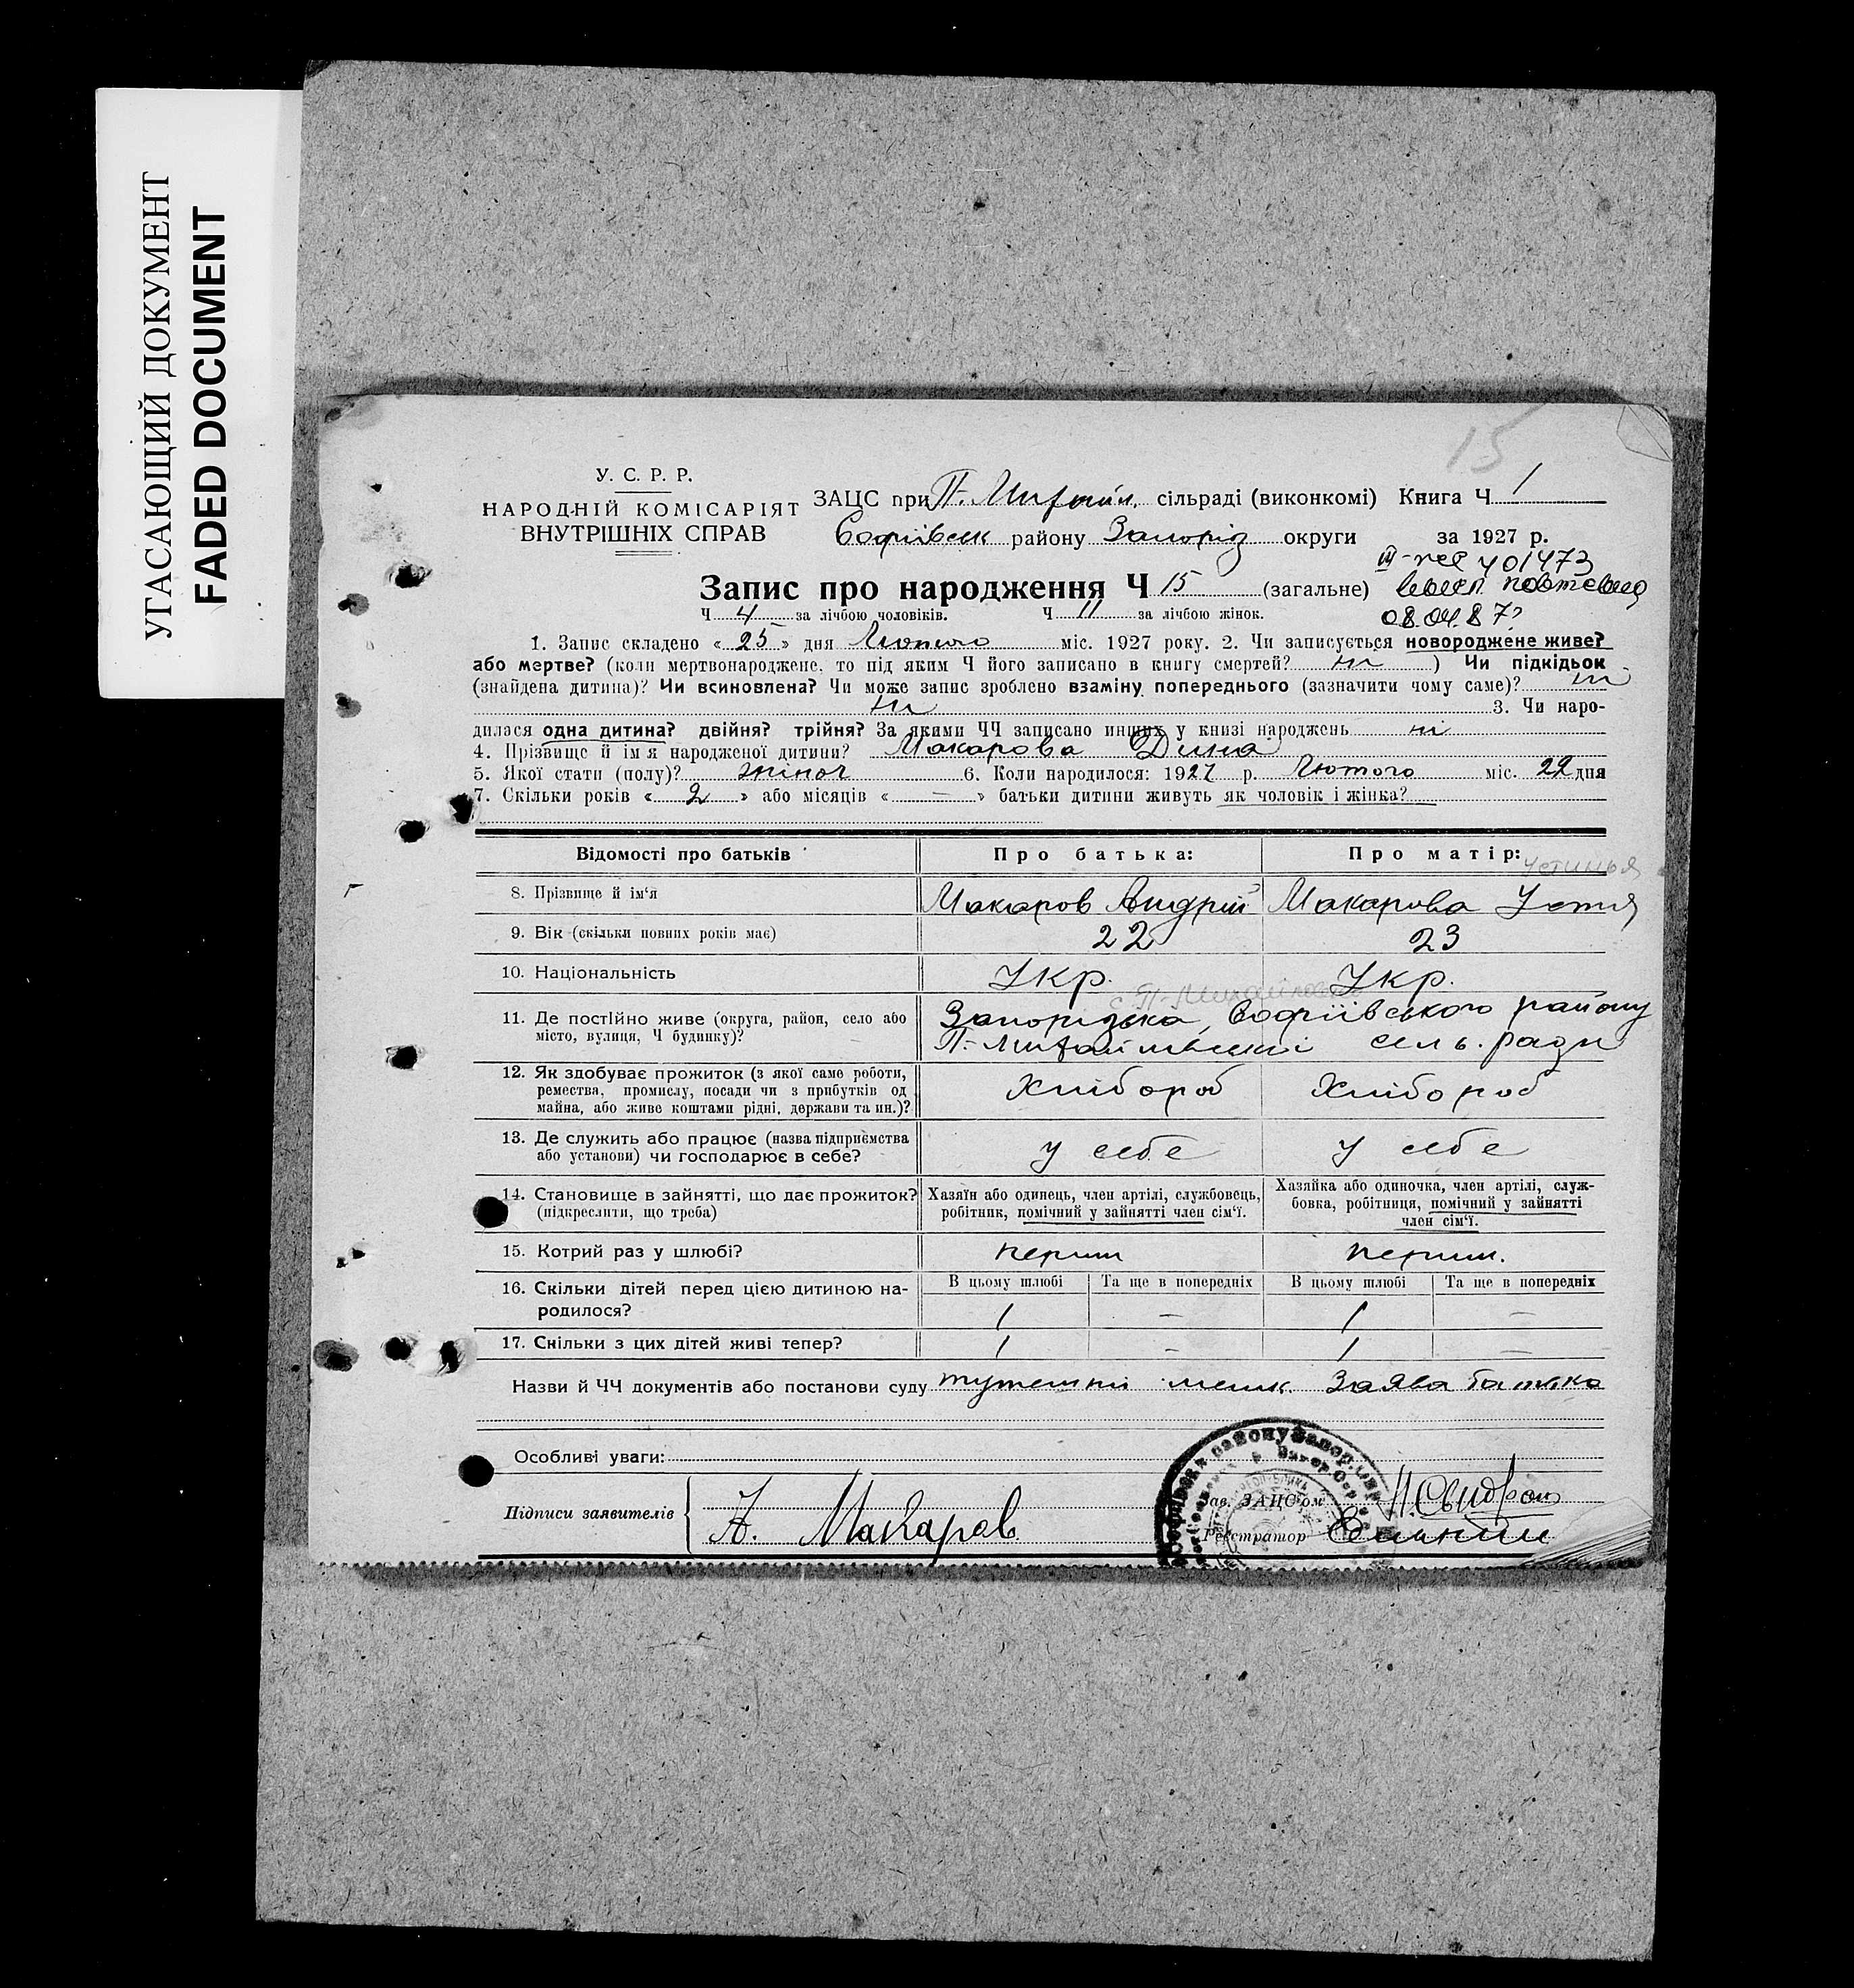 УГАСАЮЩИЙ ДОКУМЕНТ
FADED DOCUMENT
15
У. С. Р. Р.
НАРОДНІЙ КОМІСАРІЯТ
ВНУТРІШНІХ СПРАВ
ЗАЦС при П-Михайл. сільраді (виконкомі) Книга Ч 1
Софіївськ району Запоріз округи за 1927 р.
III-ЖС 401473
повторно
08.04.87
Запис про народження Ч 15 (загальне)
Ч 4 за лічбою чоловіків. Ч 11 за лічбою жінок.
1. Запис складено «25» дня Лютого міс. 1927 року. 2. Чи записується новороджене живе?
або мертве? (коли мертвонароджене, то під яким Ч його записано в книгу смертей? ні ) Чи підкідьок
(знайдена дитина)? Чи всиновлена? Чи може запис зроблено взаміну попереднього (зазначити чому саме)? ні
ні 3. Чи наро-
дилася одна дитина? двійня? трійня? За якими ЧЧ записано инших у книзі народжень ні
4. Прізвище й ім'я народженої дитини? Макарова Дина
5. Якої стати (полу)? жіноч 6. Коли народилося: 1927 р. Лютого міс. 22 дня
7. Скільки років «2» або місяців «—» батьки дитини живуть як чоловік і жінка?
Відомості про батьків Про батька: Про матір:
Устинья
8. Прізвище й ім'я Макаров Андрій Макарова Устя
9. Вік (скільки повних років має) 22 23
10. Національність Укр. Укр.
с. П-Михайловка
11. Де постійно живе (округа, район, село або Запорізька, Софіївського району
місто, вулиця, Ч будинку)? П-Михайлівської сель. ради
12. Як здобуває прожиток (з якої саме роботи,
ремества, промислу, посади чи з прибутків од Хлібороб Хлібороб
майна, або живе коштами рідні, держави та ин.)?
13. Де служить або працює (назва підприємства
або установи) чи господарює в себе? у себе у себе
14. Становище в зайнятті, що дає прожиток? Хазяїн або одинець, член артілі, службовець, Хазяйка або одиночка, член артілі, служ-
(підкреслити, що треба) робітник, помічний у зайнятті член сім'ї. бовка, робітниця, помічний у зайнятті
член сім'ї.
15. Котрий раз у шлюбі? перши перши.
16. Скільки дітей перед цією дитиною на- В цьому шлюбі Та ще в попередніх В цьому шлюбі Та ще в попередніх
родилося? 1 — 1 —
17. Скільки з цих дітей живі тепер? 1 — 1 —
Назви й ЧЧ документів або постанови суду тутешні меш. Заява батька
Особливі уваги:
Підписи заявителів А. Макаров
Зав. ЗАЦС'ом
Реєстратор